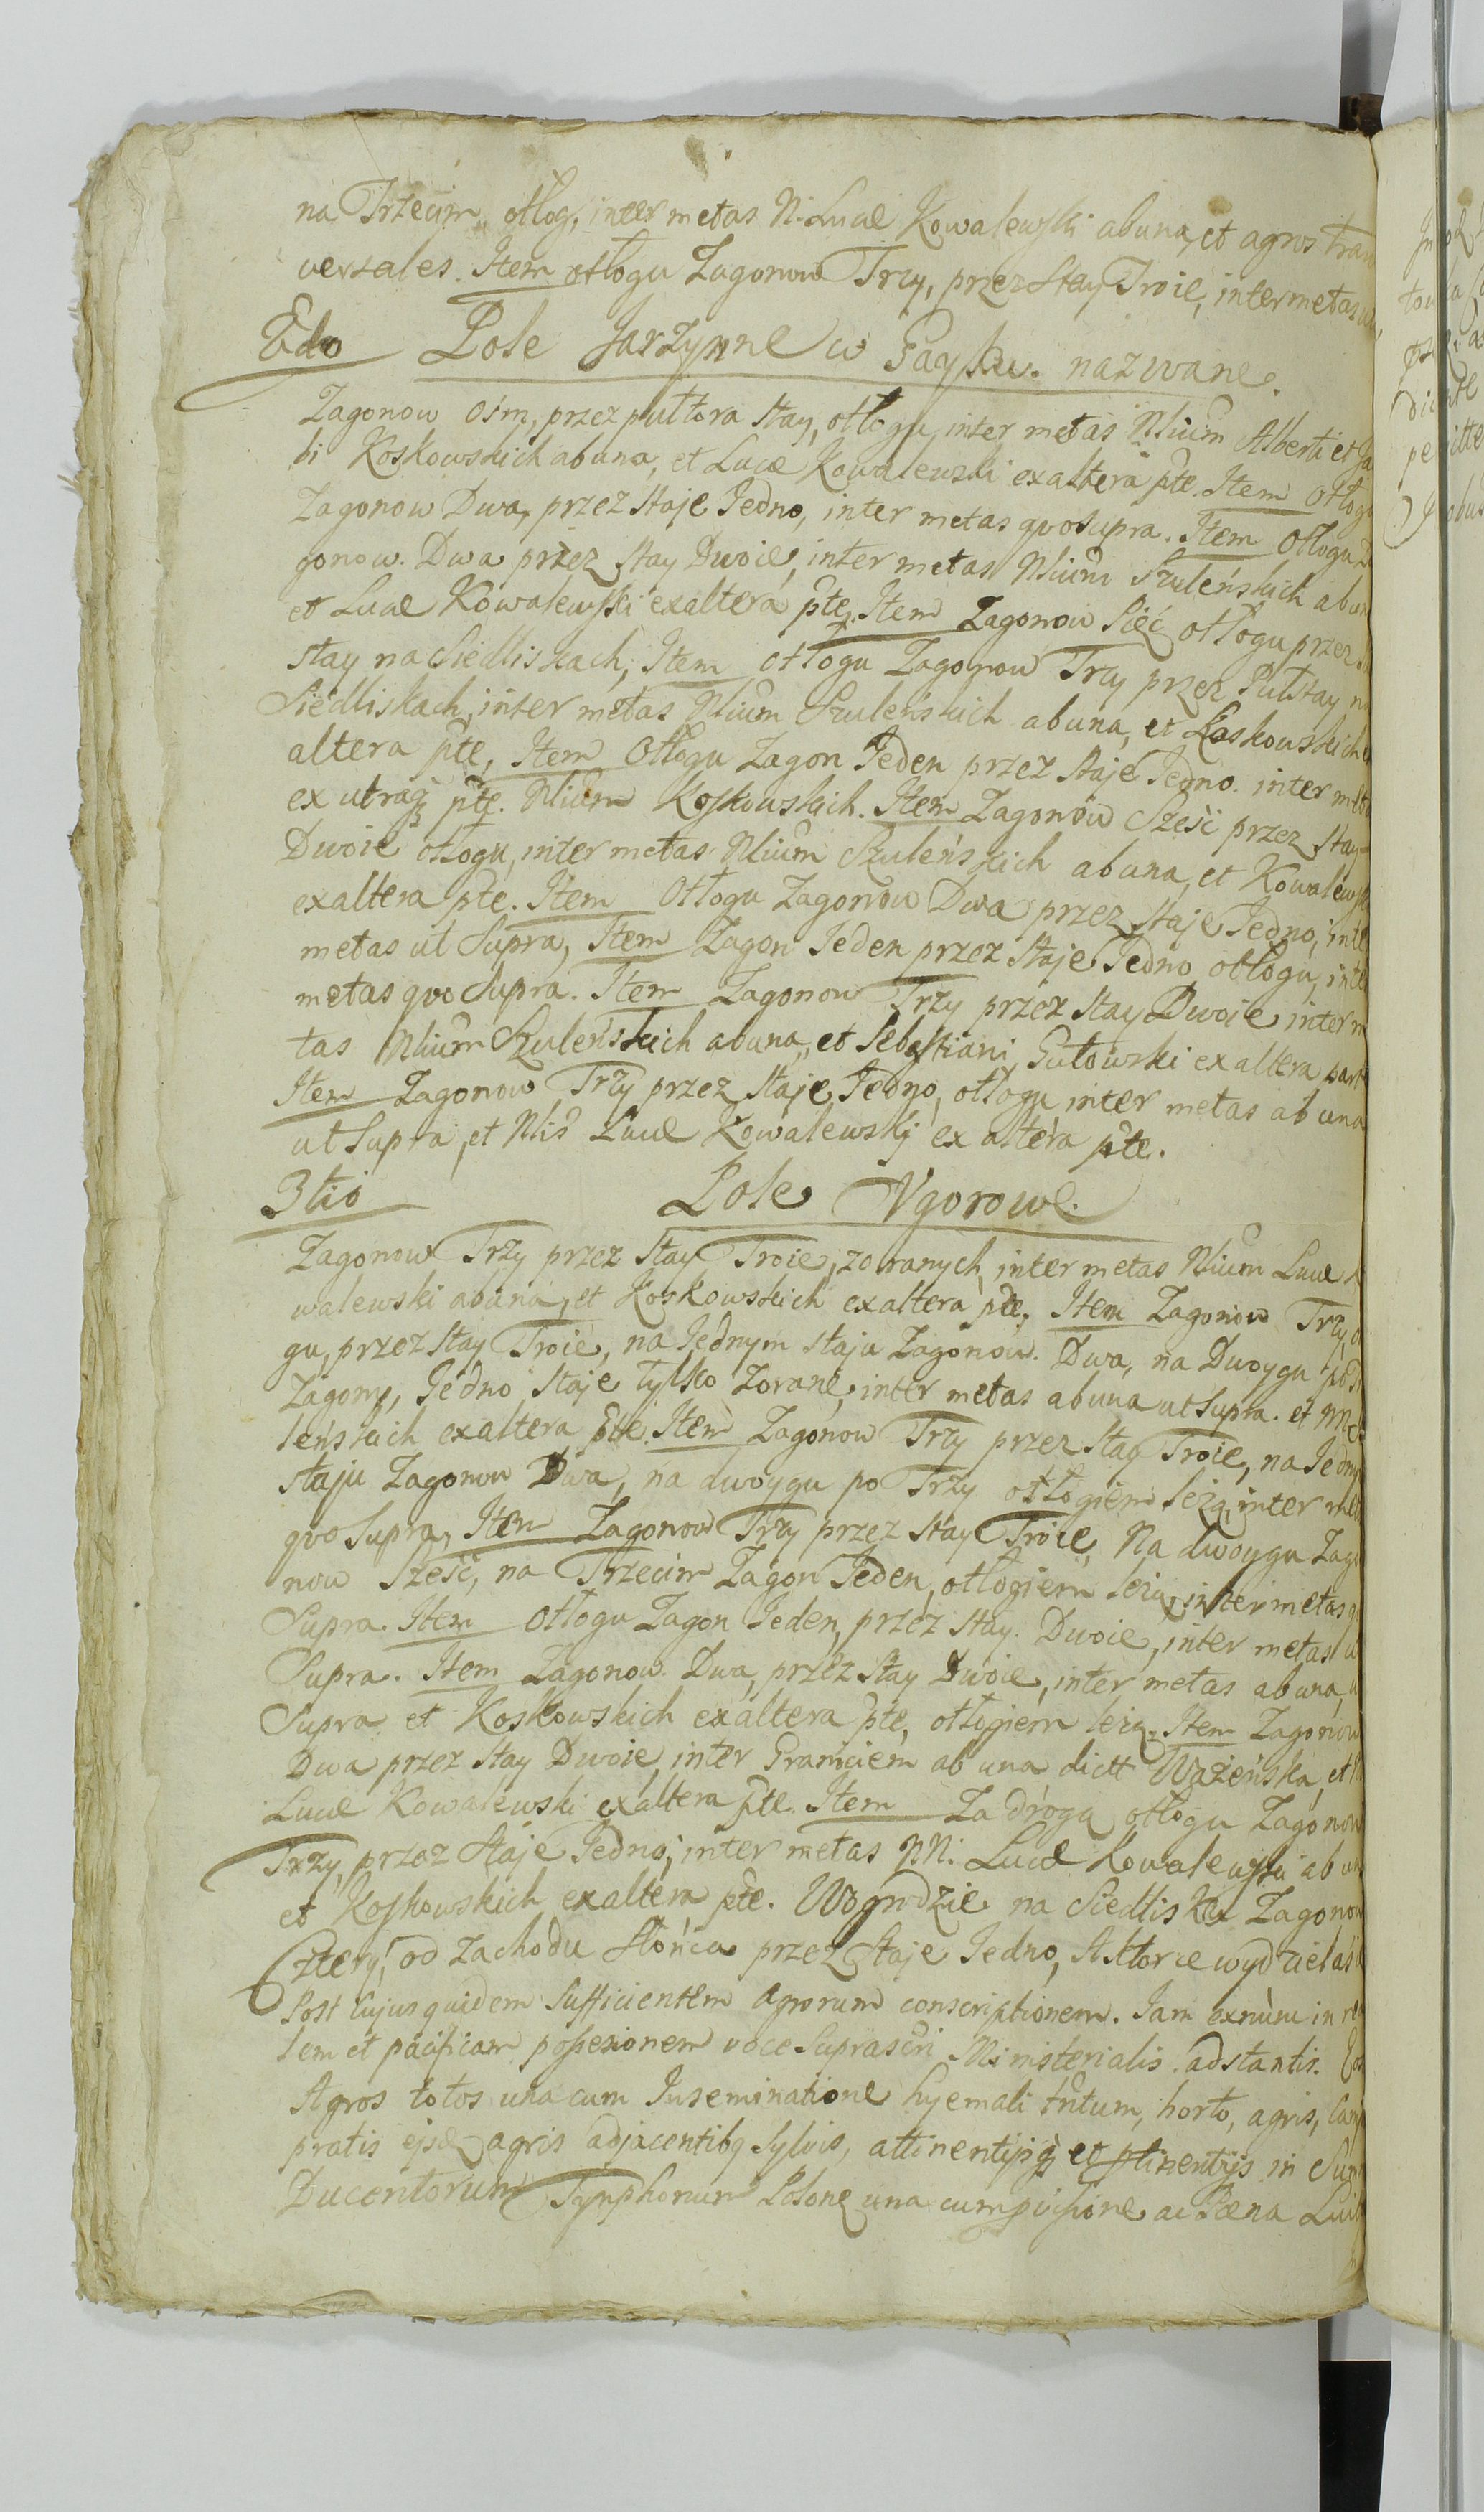 na Trzecim, otłog, inter metas N. Lucæ Kowalewski abuna, et agros trans
versales. Item otłogu Zagonow Trzy, przez Stay Troie, inter metas
2do Pole Jarzynne w Gaysku nazwane.
Zagonow osm, przez pułtora stay, otłogu, inter metas Nlium Alberti et Ja
bi Koskowskich abuna, et Lucæ Kowalewski exaltera pte. Item otłogu
Zagonow Dwa, przez Staje Jedno, inter metas qvo supra. Item otłogu Za
gonow. Dwa przez Stay Dwoie, inter metas Nlium Szuleńskich abun
et Lucæ Kowalewski exaltera pte, Item Zagonow Pięć otłogu przez
stay na Siedliskach, Item otłogu Zagonow Trzy przez Pułstay, na
Siedliskach, inter metas Nlium Szuleńskich abuna, et Koskowskich
altera pte, Item Otłogu Zagon Jeden przez Staje Jedno. inter met
ex utraq pte. Nlium Koskowskich. Item Zagonow Sześć przez Stay
Dwoie otłogu, inter metas Nlium Szuleńskich abuna, et Kowalewsk
exaltera pte. Item Otłogu Zagonow Dwa przez Staje Jedno, inte
metas ut Supra, Item Zagon Jeden przez Staje Jedno otłogu, inte
metas qvo Supra. Item Zagonow Trzy przez Stay Dwoie inter m
tas Nlium Szuleńskich abuna, et Sebastiani Gutowski exaltera part
Item Zagonow Trzy przez Staje Jedno, otłogu inter metas abuna
ut Supra, et Nlis Lucæ Kowalewski ex altera pte.
3tio Pole Vgorowe.
Zagonow Trzy przez Stay Troie, zoranych, inter metas Nlium Lucæ
walewski abuna, et Koskowskich exaltera pte, Item Zagonow Trzy, o
gu, przez Stay Troie, na Jednym staju Zagonow. Dwa, na Dwoygu po
Zagony, Jedno Staje tylko Zorane, inter metas abuna ut Supra. et
leńskich exaltera pte. Item Zagonow Trzy przez Stay Troie, na Jedny
staju Zagonow Dwa, na dwoygu po Trzy otłogiem leżą, inter met
qvo Supra, Item Zagonow Trzy przez Stay Troie, Na dwoygu Zago
now Sześć, na Trzecim Zagon Jeden, otłogiem leżą, inter metas q
Supra. Item Otłogu Zagon Jeden, przez Stay. Dwoie, inter metas u
Supra. Item Zagonow. Dwa, przez Stay Dwoie, inter metas abuna, u
Supra et Koskowskich exaltera pte, otłogiem leżą. Item Zagonow
Dwa przez Stay Dwoie inter Graniciem ab una dictt Ważeńska, et
Lucæ Kowalewski exaltera pte. Item Za drogą otłogu Zagonow
Trzy, przez Staje Jedno, inter metas NN. Lucæ Kowalewski ab un
et Koskowskich exaltera pte. Wogrodzie na Siedlisku Zagonow
Cztery, od Zachodu Słońca przez Staje Jedno, Aktorce wydzielaś
Post Cujus quidem Sufficientem agrorum conscriptionem. Jam exnunc in rea
lem et pacificam possesionem voce Suprascri Ministerialis adstantis. Eos
Agros totos una cum Inseminatione hyemali tntum, horto, agris, Camp
pratis ejsq agris adjacentibq Sylvis, attinentijsq et ptinentijs in Sum
Ducentorum Tynphorum Polon. una cum ac Pæna Luit